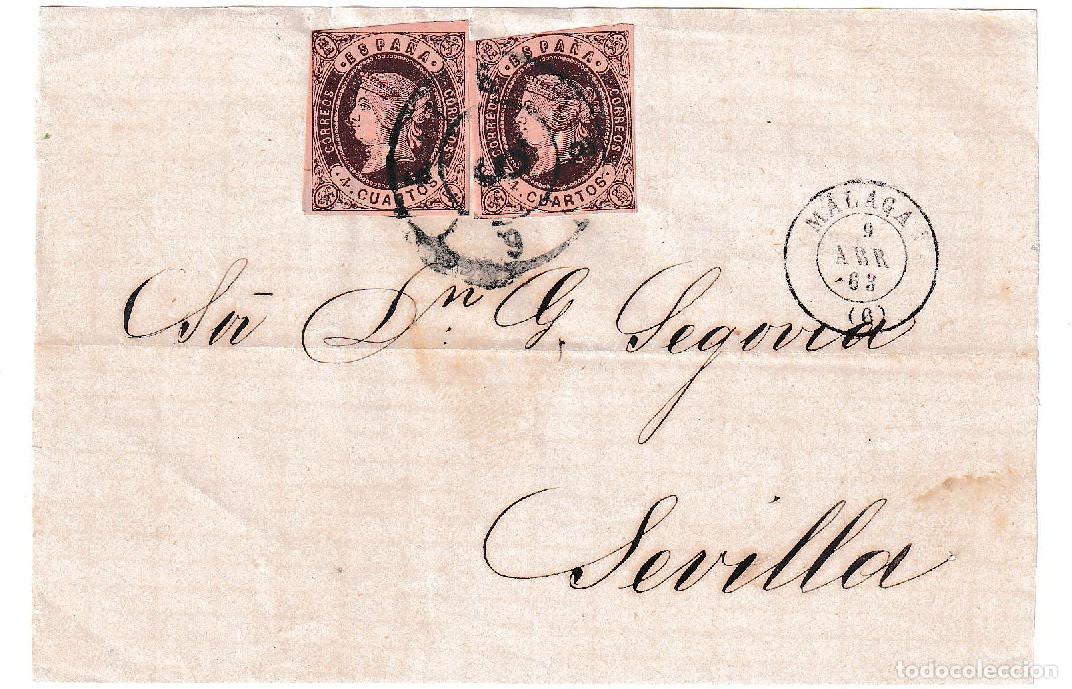 ESPAÑA
CORREOS CORREOS
4 CUARTOS
ESPAÑA
CORREOS CORREOS
4 CUARTOS
MÁLAGA
9
ABR
63
(6)
Sor. Dn. G. Segovia
Sevilla
todocoleccion